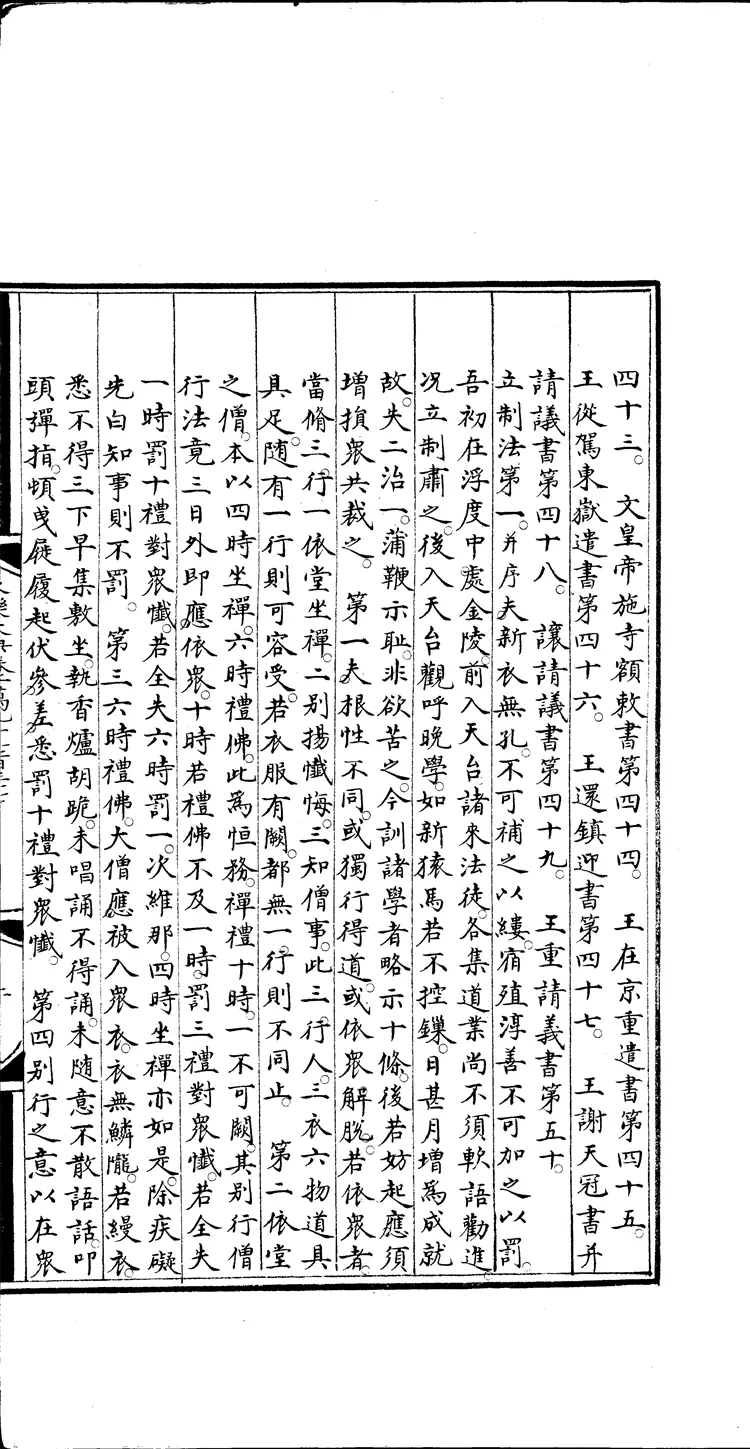 四十三。　文皇帝施寺額敕書第四十四。　王在京重遣書第四十五。
王從駕東嶽遣書第四十六。　王還鎮迎書第四十七。　王謝天冠書并
請議書第四十八。　讓請議書第四十九。　王重請義書第五十。
立制法第一。并序夫新衣無孔。不可補之以縷。宿殖淳善不可加之以罰。
吾初在浮度中處金陵。前入天台諸來法徒。各集道業尚不須軟語勸進。
况立制肅之。後入天台觀呼晚學。如新猿馬若不控鏁。日甚月增為成就
故。失二治一。蒲鞭示恥。非欲苦之。今訓諸學者略示十條。後若妨起應須
增損眾共裁之。　第一夫根性不同。或獨行得道。或依眾解脫。若依眾者。
當脩三。行一依堂坐禪。二別揚懺悔。三知僧事。此三行人。三衣六物道具
具足。随有一行則可容受。若衣服有闕。都無一。行則不同止。　第二依堂
之僧。本以四時坐禪。六時禮佛。此為恒務。禪禮十時。一不可闕。其別行僧
行法竟三日外即應依眾。十時若禮佛不及一時。罰三禮對眾懺。若全失
一時罰十禮對眾懺。若全失六時罰一。次維那。四時坐禪亦如是。除疾礙
先白知事則不罰。　第三六時禮佛。大僧應被入眾衣。衣無鱗隴。若縵衣。
悉不得三下早集敷坐。執香爐胡跪。未唱誦不得誦。未随意不散語話。叩
頭彈指。頓曳屣履起伏參差。悉罰十禮對眾懺。　第四別行之意以在眾